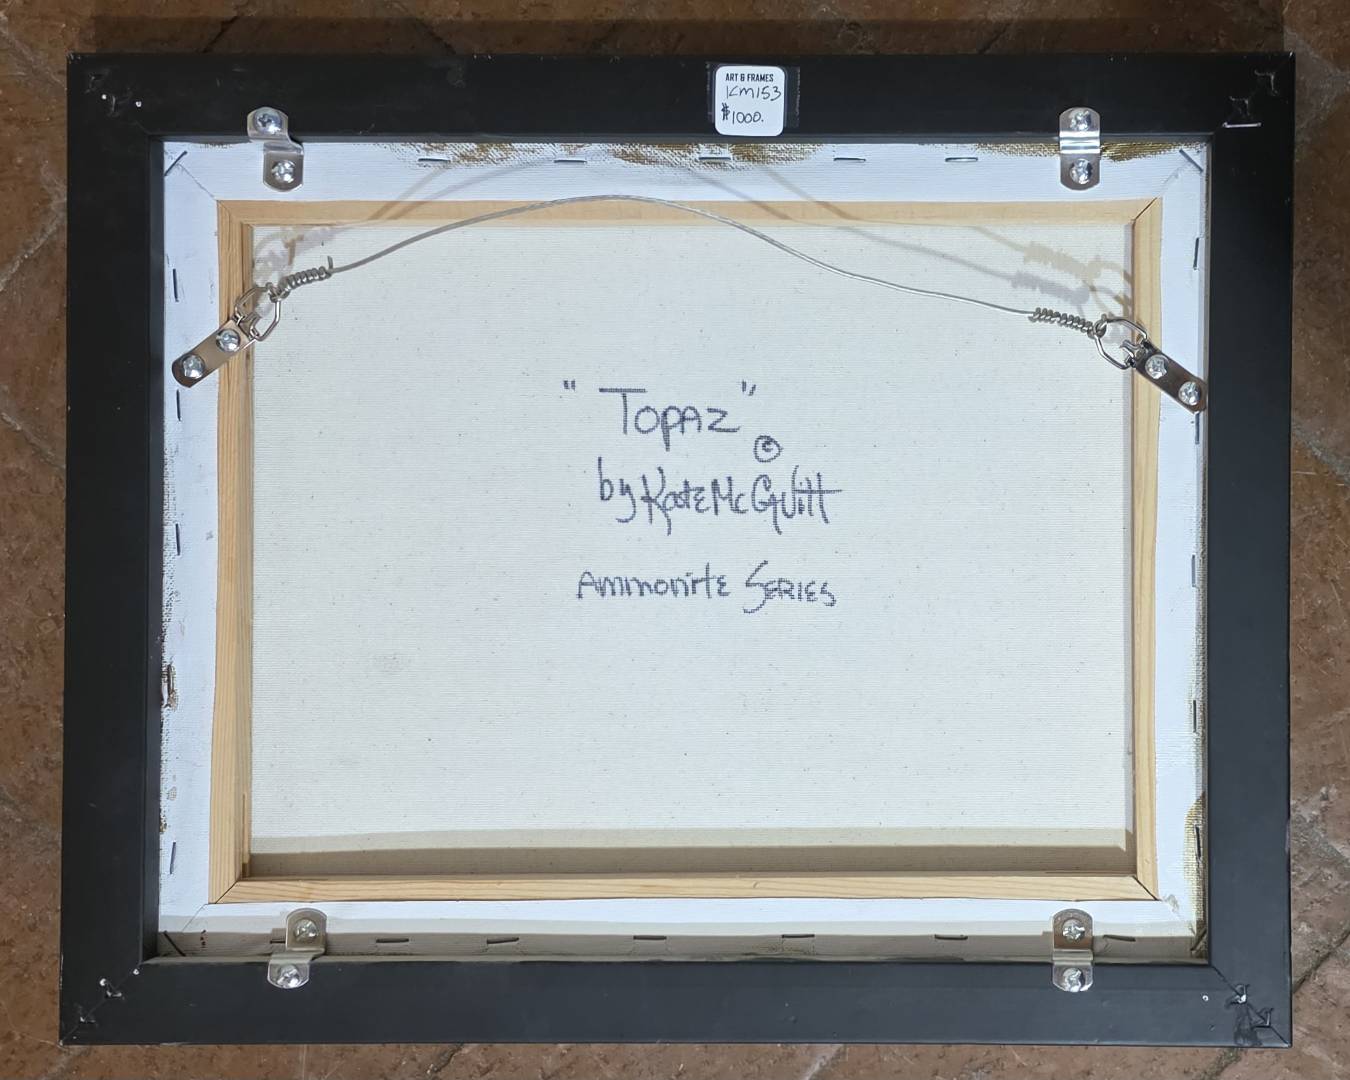 ART & FRAMES
KM153
$1000.
"Topaz" ©
by Kate McGuitt
Ammonite Series